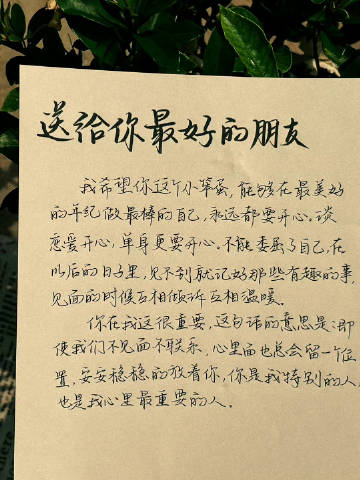 送给你最好的朋友
我希望你这个小笨蛋，能够在最美好
的年纪做最棒的自己，永远都要开心。谈
恋爱开心，单身更要开心。不能委屈了自己，在
以后的日子里，见不到就记好那些有趣的事，
见面的时候互相倾诉互相温暖。
你在我这很重要，这句话的意思是：即
使我们不见面不联系，心里面也总会留一个位
置，安安稳稳的放着你，你是我特别的人，
也是我心里最重要的人。